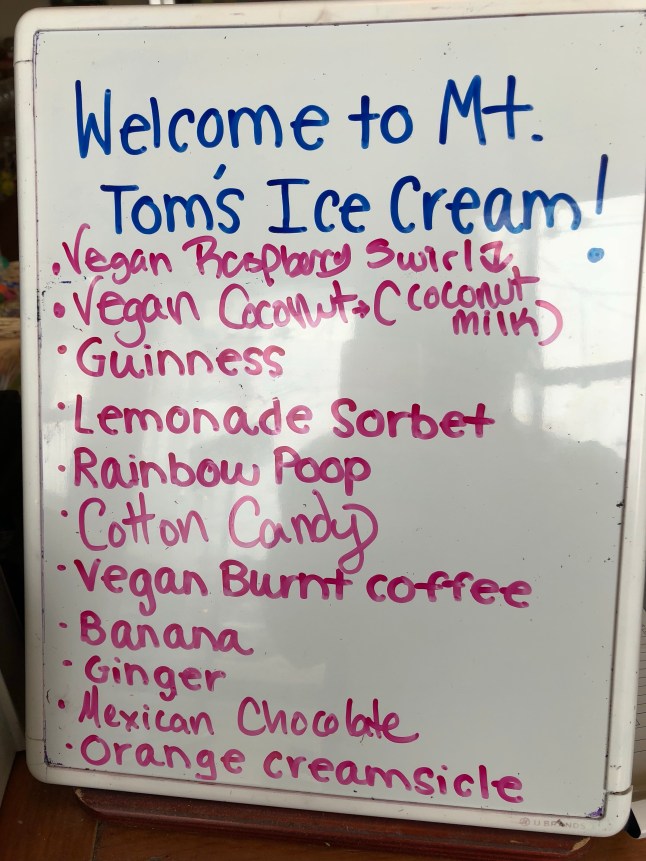 Welcome to Mt.
Tom's Ice Cream!
• Vegan Raspberry Swirl
• Vegan Coconut → (coconut
milk)
• Guinness
• Lemonade Sorbet
• Rainbow Poop
• Cotton Candy
• Vegan Burnt coffee
• Banana
• Ginger
• Mexican Chocolate
• Orange creamsicle
U BRANDS